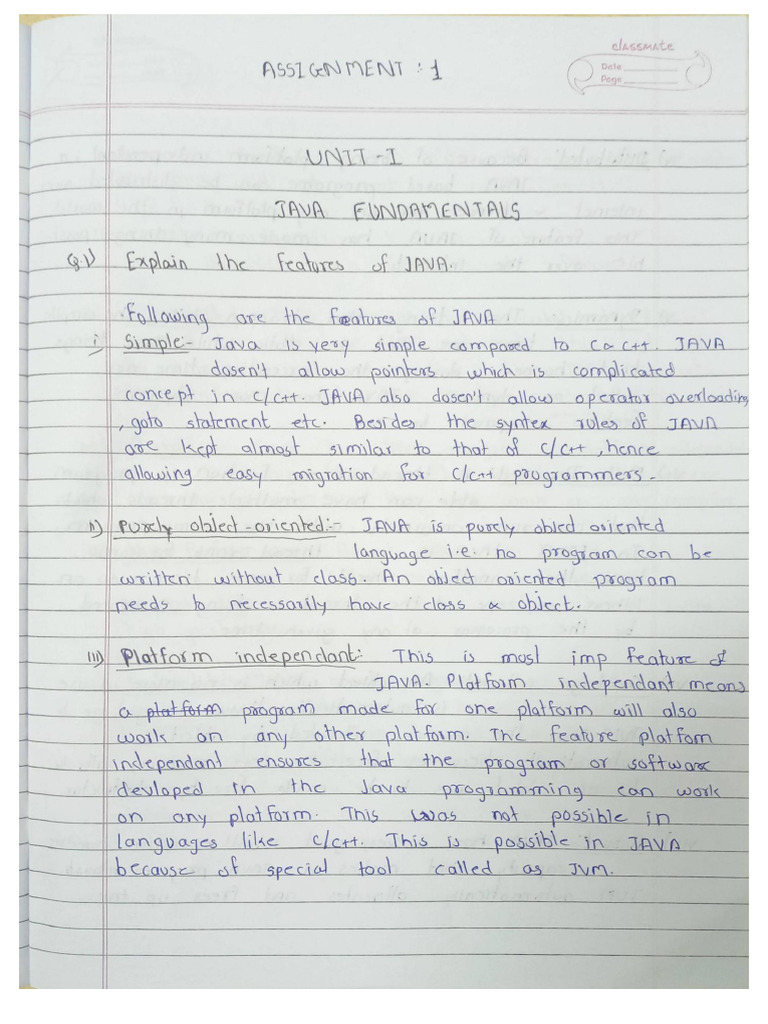 classmate
Date
Page
ASSIGNMENT : 1
UNIT - I
JAVA FUNDAMENTALS
Q.1) Explain the features of JAVA.
Following are the features of JAVA
i) Simple:- Java is very simple compared to C & C++. JAVA
dosen't allow pointers which is complicated
concept in C/C++. JAVA also dosen't allow operator overloading
, goto statement etc. Besides the syntex rules of JAVA
are kept almost similar to that of C/C++, hence
allowing easy migration for C/C++ programmers.
ii) Purely object-oriented:- JAVA is purely obled oriented
language i.e. no program can be
written without class. An object oriented program
needs to necessarily have class & object.
iii) Platform independant: This is most imp feature of
JAVA. Platform independant means
a platform program made for one platform will also
work on any other platform. The feature platfom
independant ensures that the program or software
devloped in the Java programming can work
on any platform. This was not possible in
languages like C/C++. This is possible in JAVA
because of special tool called as JVM.